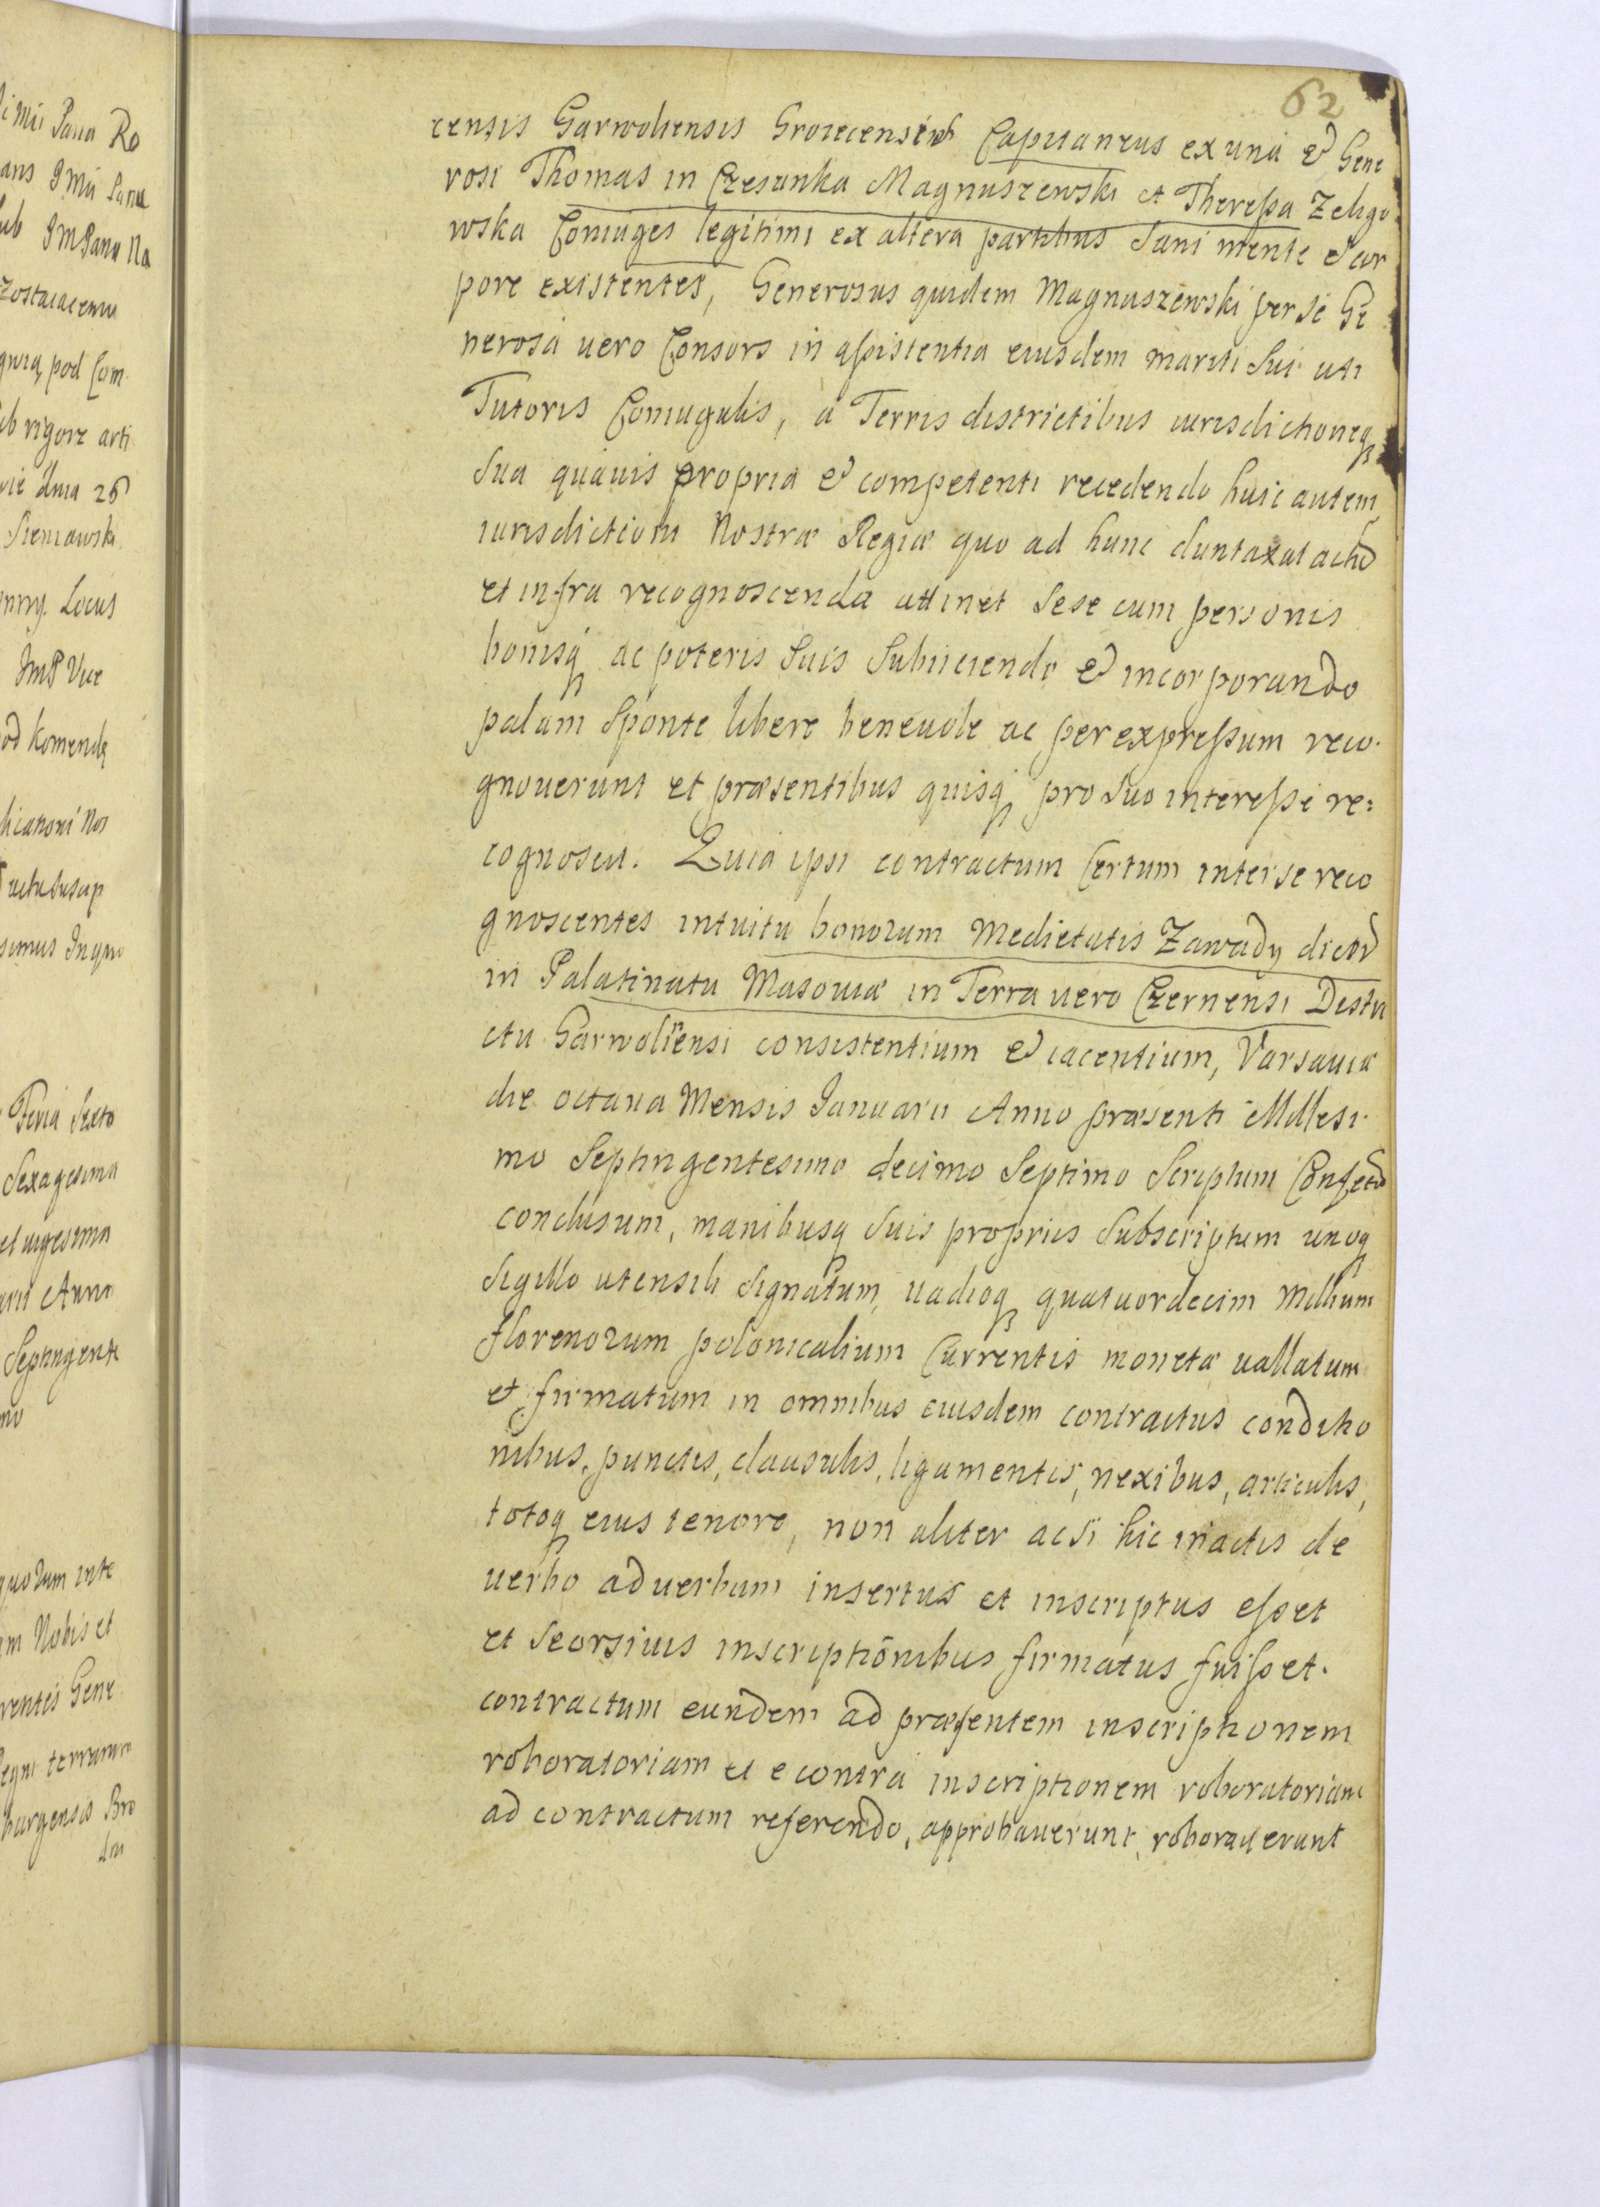 62
censis Garwoliensis Groiecensisq Capitaneus ex una & Gene
rosi Thomas in Czesanka Magnuszewski et Theressa Zeligo
wska Coniuges legitimi ex altera partibus Sani mente & cor
pore existentes, Generosus quidem Magnuszewski per se Ge
nerosa uero Consors in assistentia eiusdem mariti Sui uti
Tutoris Coniugalis, a Terris districtibus iurisdictioneq
Sua quauis propria & competenti recedendo huic autem
iurisdictioni Nostræ Regiæ quo ad hunc duntaxat actu
et infra recognoscenda attinet Sese cum personis
bonisq ac poteris Suis Subiiciendo & incorporando
palam Sponte libere beneuole ac per expressum reco
gnouerunt et præsentibus quisq pro Suo interesse re
cognoscu. Quia ipsi contractum Certum inter se reco
gnoscentes intuitu bonorum Medietatis Zawady dictor
in Palatinatu Masouiæ in Terra uero Czernensi Distri
ctu Garwoliensi consistentium & iacentium, Varsauiæ
die octaua Mensis Januarii Anno præsenti Millesi
mo Septingentesimo decimo Septimo Scriptum Confectu
conclusum, manibusq Suis propriis Subscriptum unoq
Sigillo utensili Signatum, uadioq quatuordecim Millium
florenorum polonicalium Currentis monetæ uallatum
et firmatum in omnibus eiusdem contractus conditio
nibus, punctis, clausulis, ligamentis, nexibus, articulis,
totoq eius tenore, non aliter ac Si hic in actis de
uerbo ad uerbum insertus et inscriptus esset
et Seorsiuis inscriptionibus firmatus fuisset.
contractum eundem ad præsentem inscriptionem
roboratoriam et e contra inscriptionem roboratoriam
ad contractum referendo, approbauerunt, roborauerunt